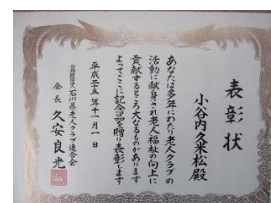 表彰状
小谷内久米松殿
あなたは多年にわたり老人クラブの
活動に献身され老人福祉の向上に
貢献するところ大なるものがあります
よってここに記念品を贈り表彰します
平成二十五年十一月一日
石川県老人クラブ連合会
会長 久安良光